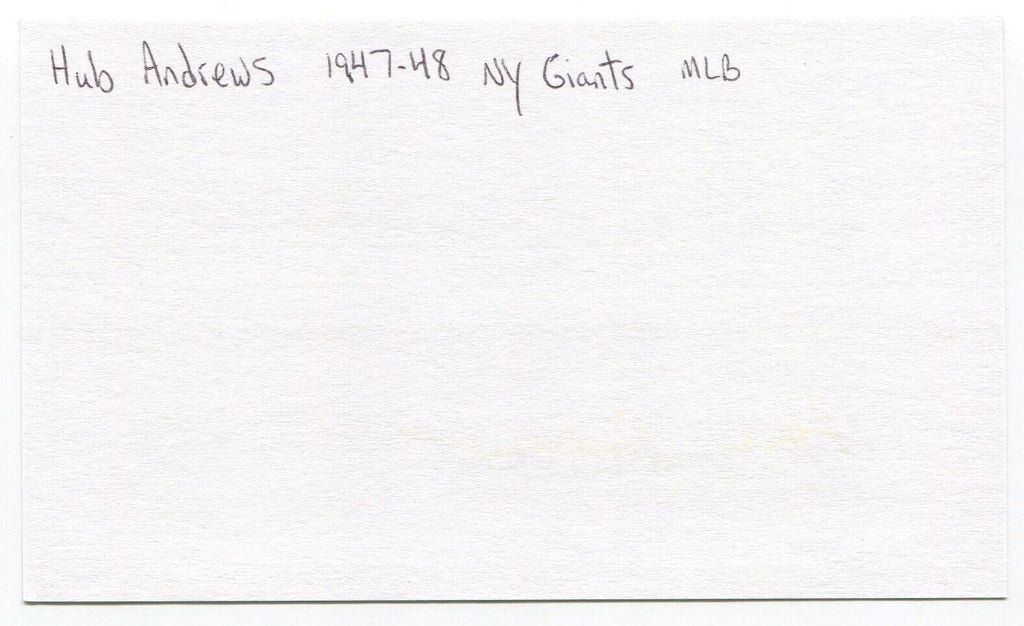 Hub Andrews 1947-48 NY Giants MLB